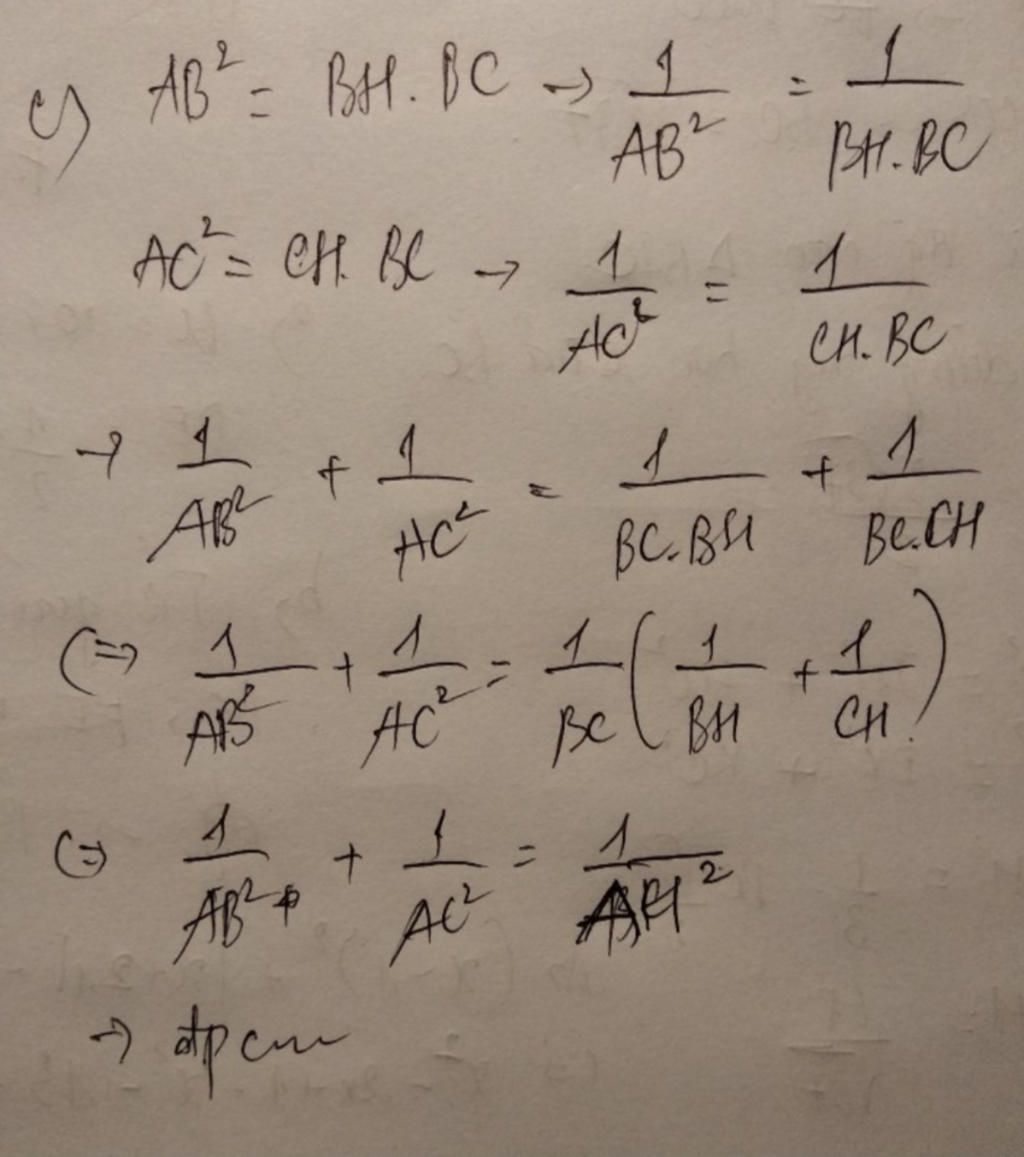 c) AB² = BH . BC → 1/AB² = 1/BH.BC
AC² = CH. BC → 1/AC² = 1/CH.BC
→ 1/AB² + 1/AC² = 1/BC.BH + 1/BC.CH
(=> 1/AB² + 1/AC² = 1/BC ( 1/BH + 1/CH )
(=> 1/AB² + 1/AC² = 1/AH²
→ đpcm